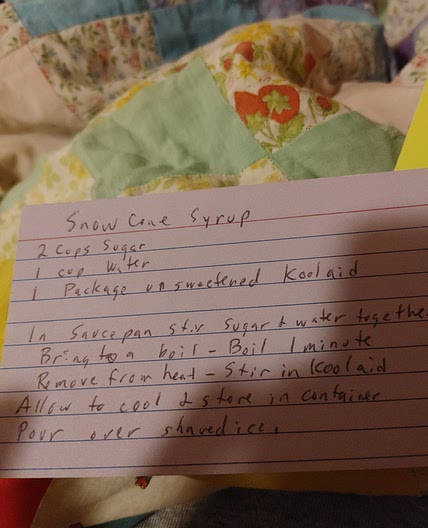 Snow Cone Syrup
2 cups Sugar
1 cup water
1 Package unsweetened Koolaid
In Sauce pan stir sugar & water together
Bring to a boil - Boil 1 minute
Remove from heat - Stir in Koolaid
Allow to cool & store in container
Pour over shaved ice.